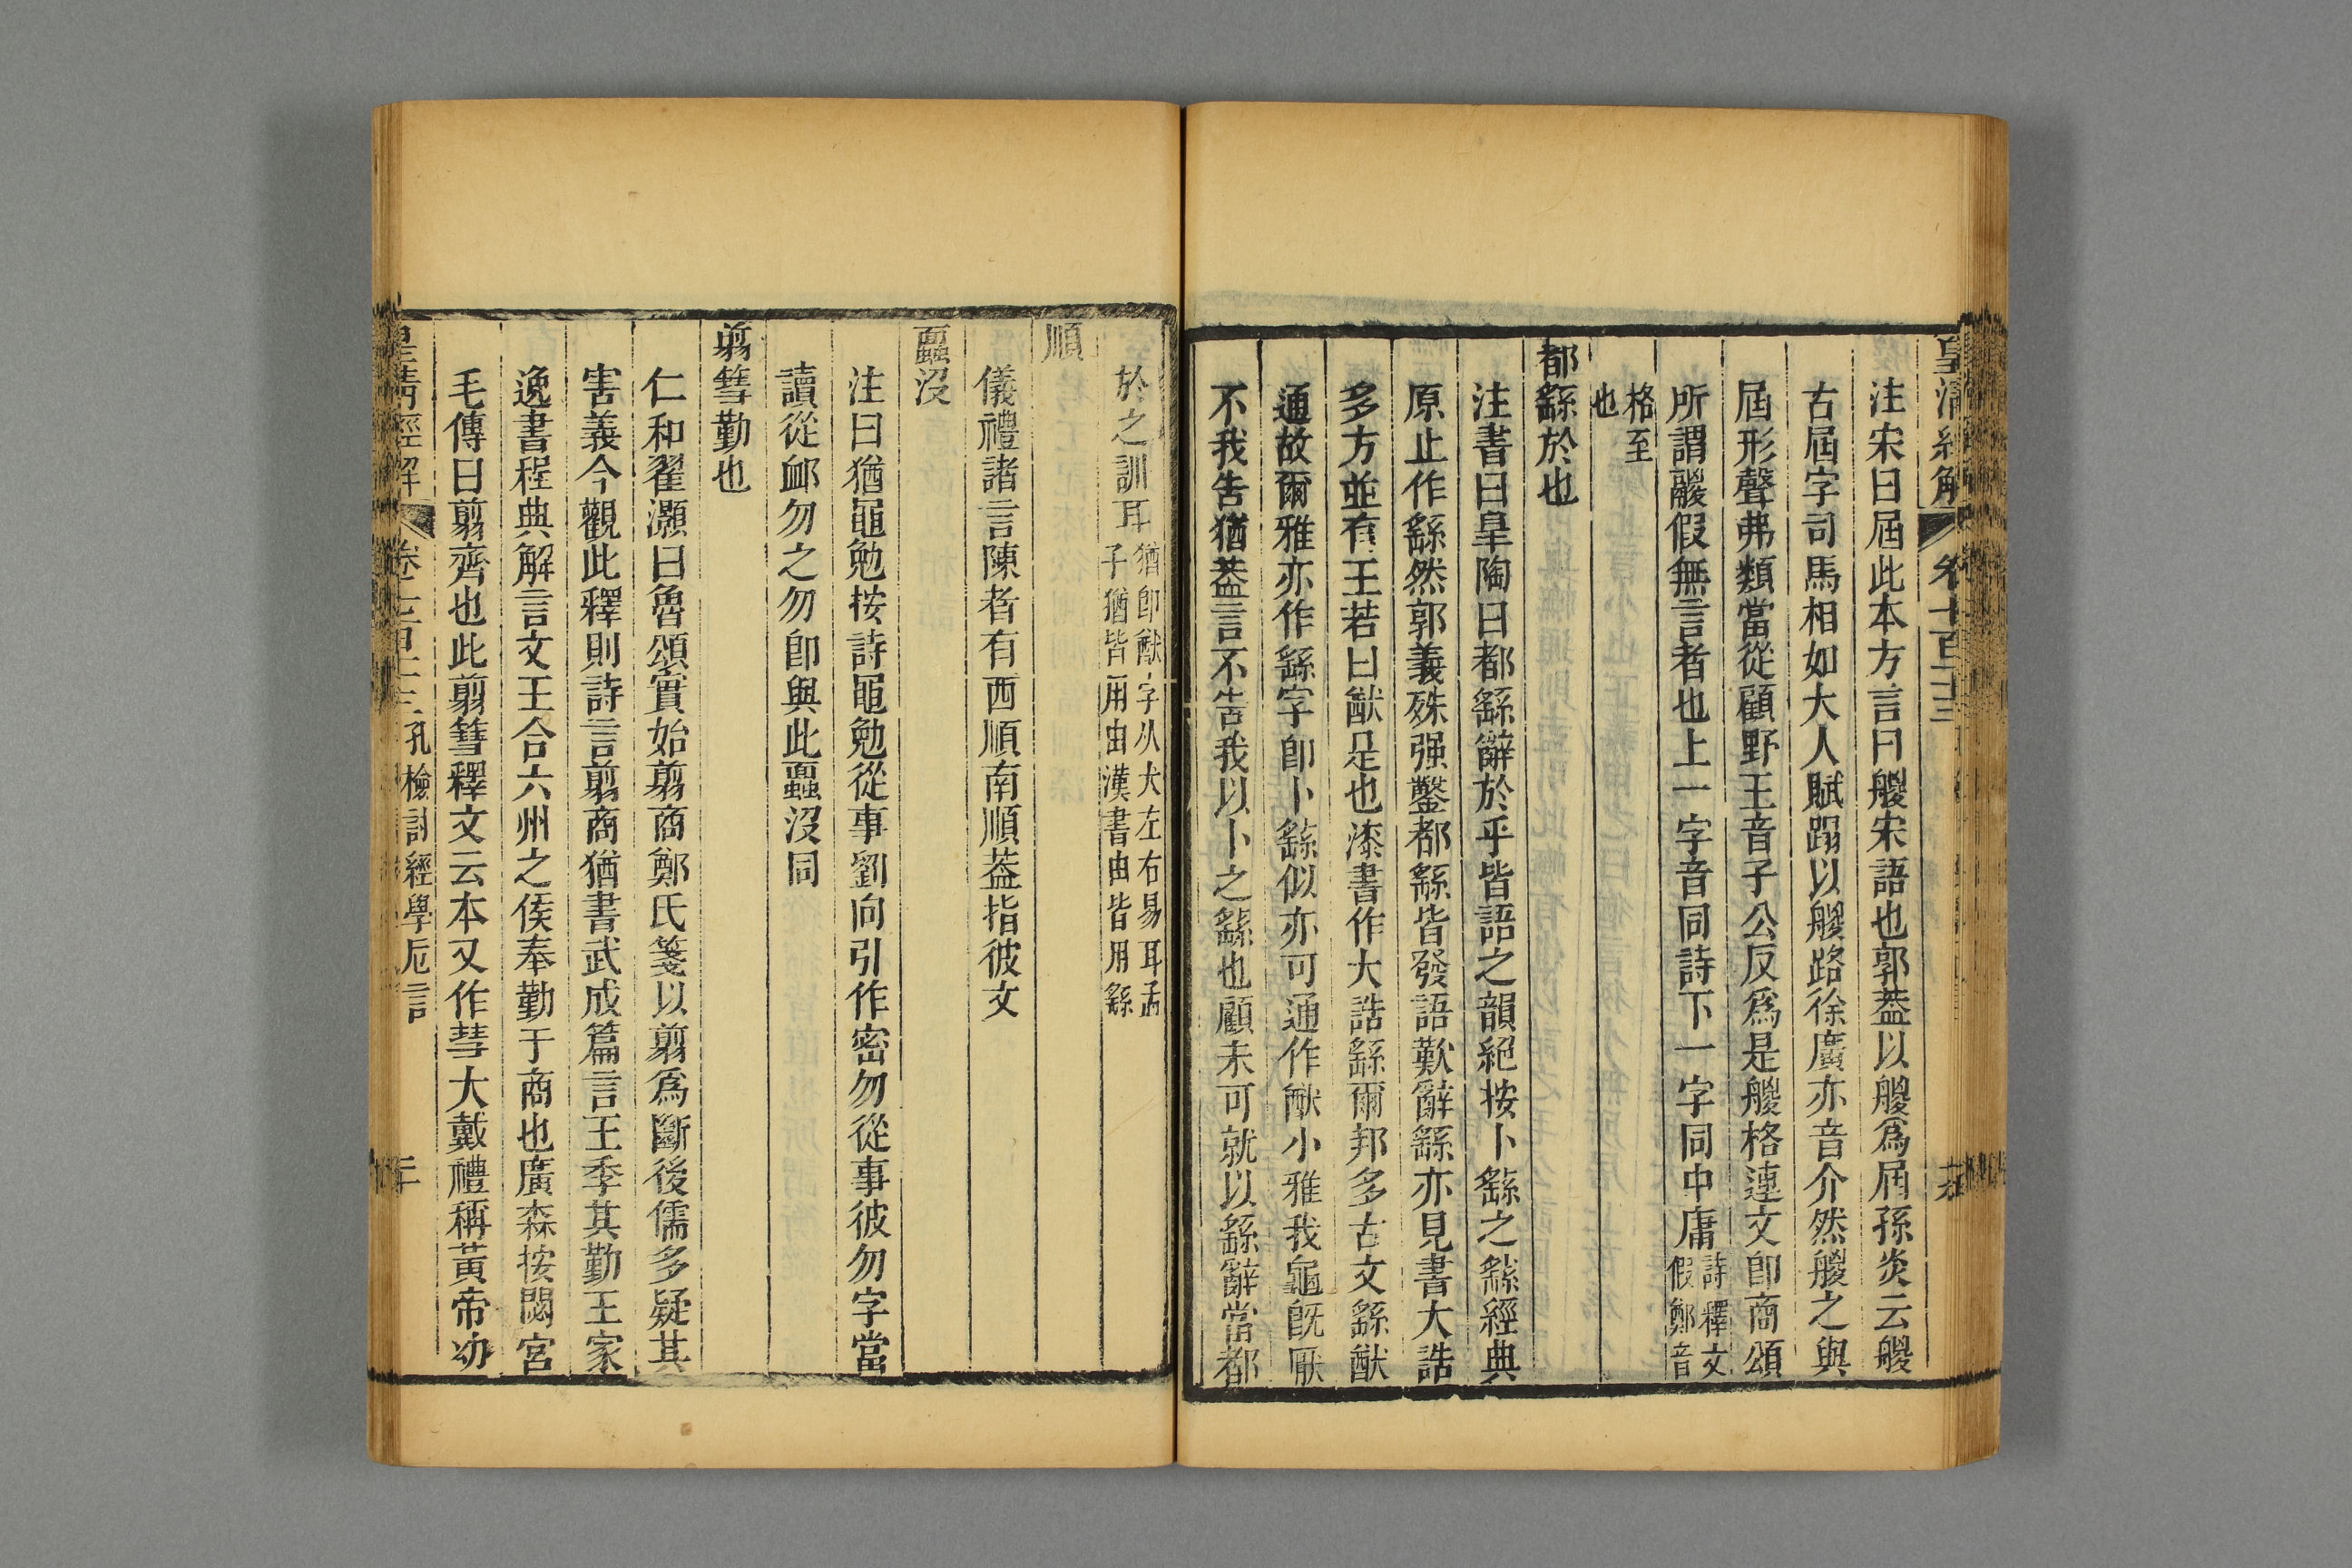 皇清經解 卷七百十三
注宋曰屆此本方言曰艐宋語也郭葢以艐爲屆孫炎云艐
古屆字司馬相如大人賦蹋以艐路徐廣亦音介然艐之與
屆形聲弗類當從顧野王音子公反爲是艐格連文卽商頌
所謂鬷假無言者也上一字音同詩下一字同中庸詩釋文假鄭音
格至也
都繇於也
注書曰皐陶曰都繇辭於乎皆語之韻絕按卜繇之繇經典
原止作繇然郭義殊强鑿都繇皆發語歎辭繇亦見書大誥
多方並有王若曰猷是也漆書作大誥繇爾邦多古文繇猷
通故爾雅亦作繇字卽卜繇似亦可通作猷小雅我龜旣厭
不我告猶葢言不告我以卜之繇也顧未可就以繇辭當都
於之訓耳猶卽猷字从犬左右易耳孟子猶皆用由漢書由皆用繇
順
儀禮諸言陳者有西順南順葢指彼文
蠠沒
注曰猶黽勉按詩黽勉從事劉向引作密勿從事彼勿字當
讀從卹勿之勿卽與此蠠沒同
翦篲勤也
仁和翟灝曰魯頌實始翦商鄭氏箋以翦爲斷後儒多疑其
害義今觀此釋則詩言翦商猶書武成篇言王季其勤王家
逸書程典解言文王合六州之侯奉勤于商也廣森按閟宮
毛傳曰翦齊也此翦篲釋文云本又作彗大戴禮稱黃帝幼
皇淸經解 卷七百十三 孔檢討經學卮言 二十